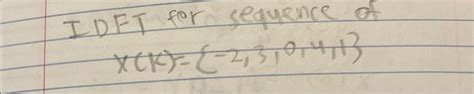 IDFT for sequence of
X(K)={-2,3,0,4,1}